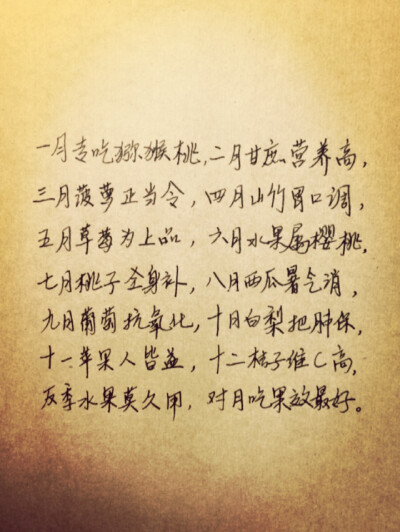 一月专吃猕猴桃,二月甘庶营养高,
三月菠萝正当令，四月山竹胃口调,
五月草莓为上品，六月水果属樱桃,
七月桃子全身补，八月西瓜暑气消,
九月葡萄抗氧化,十月白梨把肺保,
十一苹果人皆益，十二桔子维C高,
反季水果莫久用，对月吃果效最好。